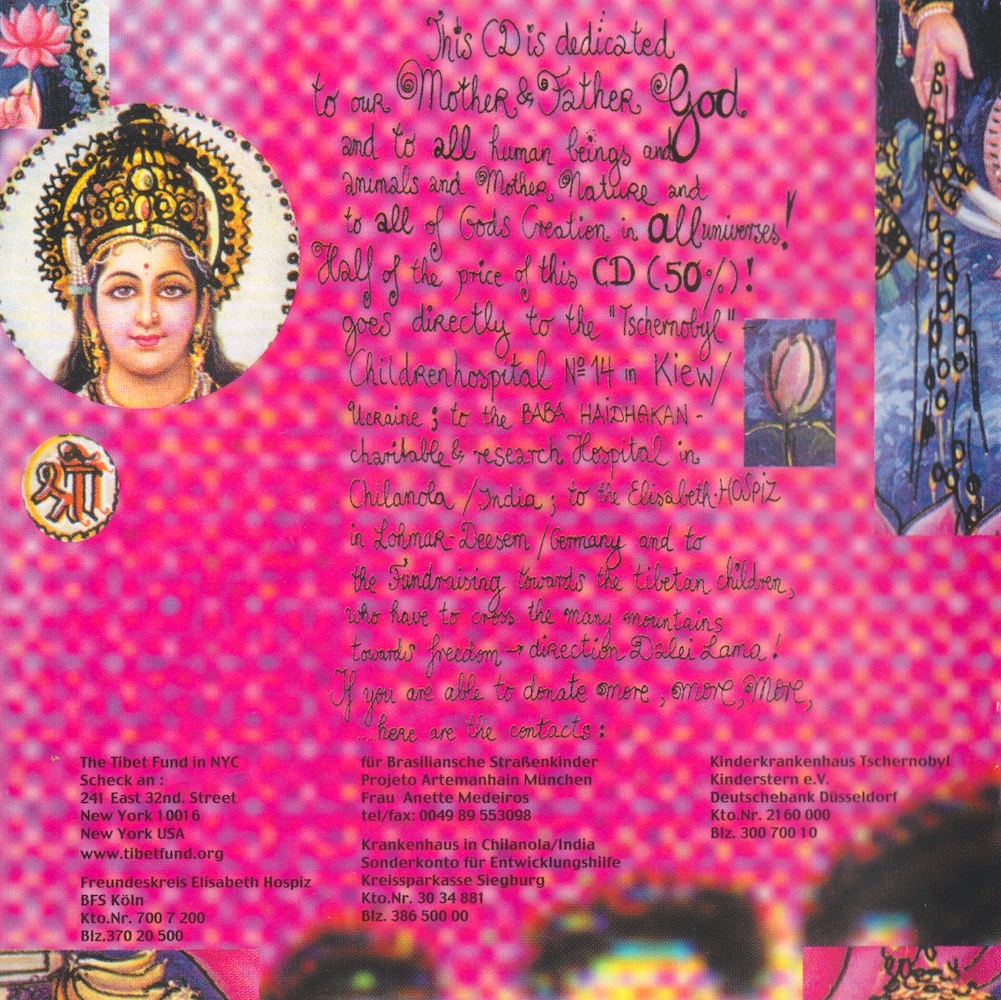 This CD is dedicated
to our Mother & Father God
and to all human beings and
animals and Mother Nature and
to all of Gods Creation in all universes!
Half of the price of this CD (50%)!
goes directly to the "Tschernobyl"-
Childrenhospital Nº 14 in Kiew/
Ucraine; to the BABA HAIDHAKAN-
charitable & research Hospital in
Chilanola /India; to the Elisabeth-HOSPiZ
in Lohmar-Deesem /Germany and to
the Fundraising towards the tibetan children,
who have to cross the many mountains
towards freedom → direction Dalei Lama!
If you are able to donate more, more, More,
...here are the contacts:
श्री
The Tibet Fund in NYC
Scheck an :
241 East 32nd. Street
New York 10016
New York USA
www.tibetfund.org
Freundeskreis Elisabeth Hospiz
BFS Köln
Kto.Nr. 700 7 200
Blz.370 20 500
für Brasiliansche Straßenkinder
Projeto Artemanhain München
Frau Anette Medeiros
tel/fax: 0049 89 553098
Krankenhaus in Chilanola/India
Sonderkonto für Entwicklungshilfe
Kreissparkasse Siegburg
Kto.Nr. 30 34 881
Blz. 386 500 00
Kinderkrankenhaus Tschernobyl
Kinderstern e.V.
Deutschebank Düsseldorf
Kto.Nr. 2160 000
Blz. 300 700 10